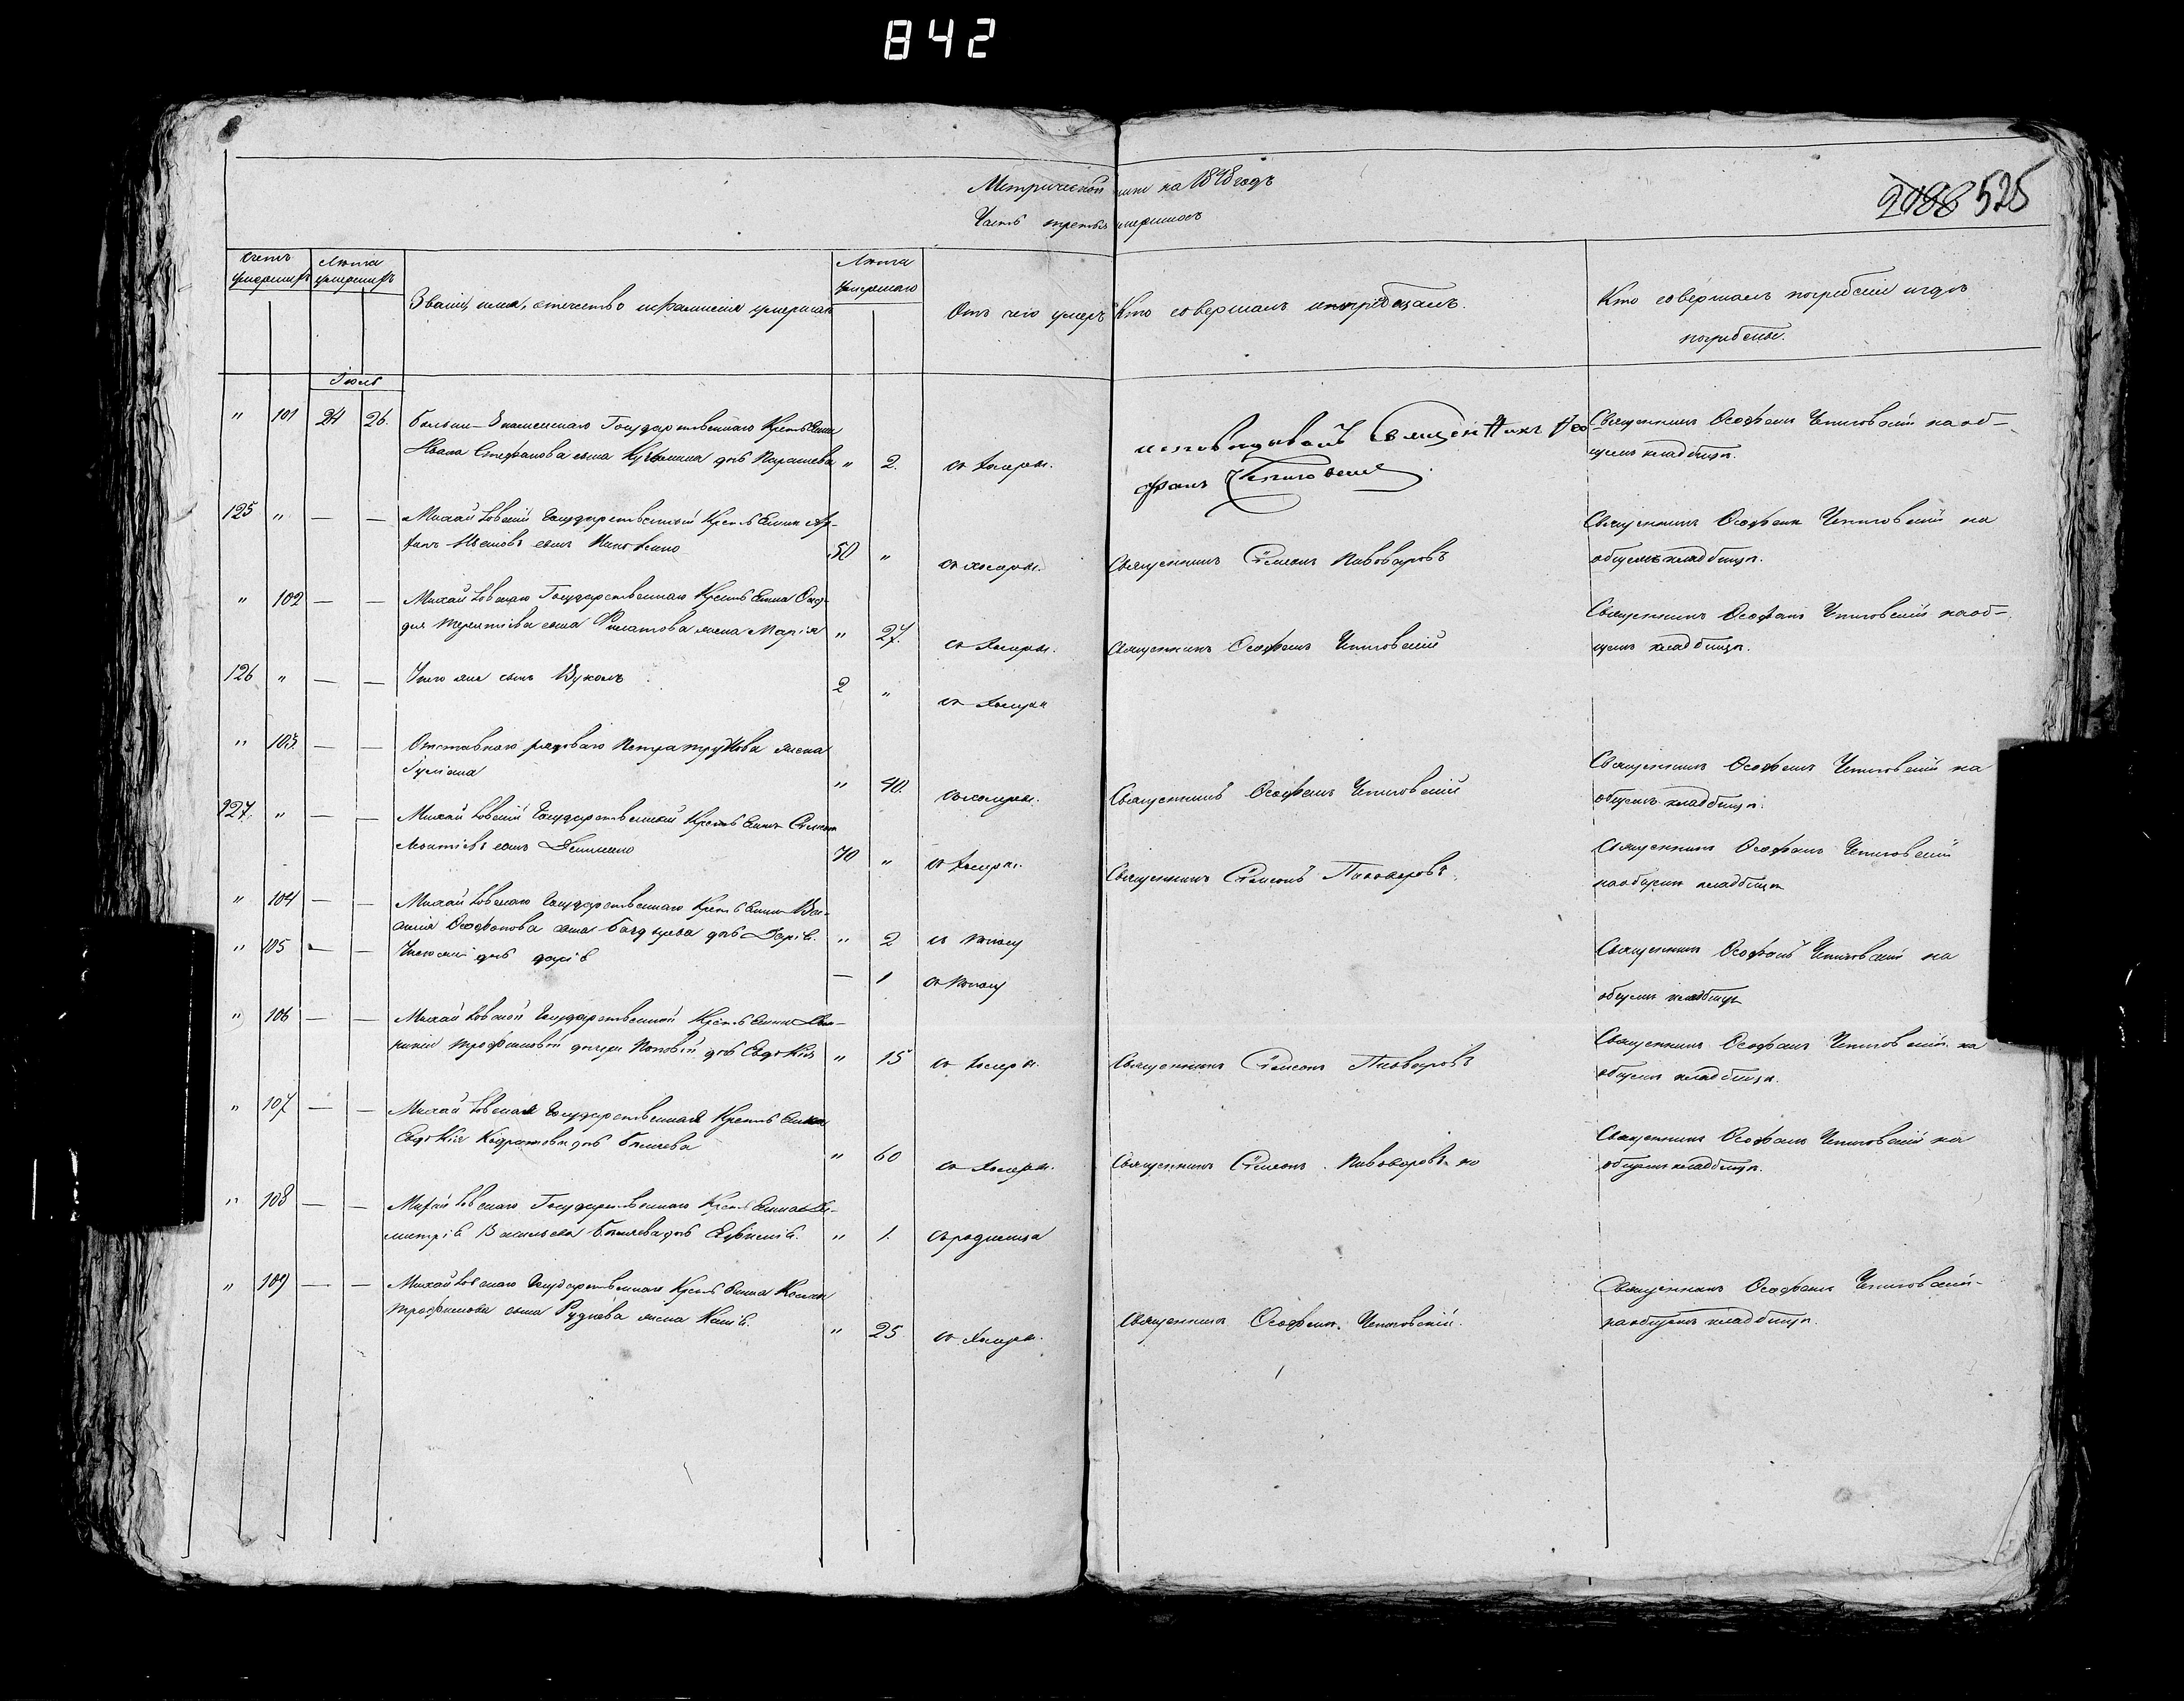 842
Метрической книги на 1848 годъ
Часть третья умершихъ
2088 525
Счетъ умершихъ
Лѣта умершихъ
Званіе, имя, отечество и фамилія умершихъ
Лѣта умершаго
Отъ чего умеръ
Кто совершалъ
Кто совершалъ погребеніе и гдѣ
погребены.
Іюль
" 101 24 26. Больше-Знаменскаго Государственнаго Крестьянина
Ивана Стефанова сына дчь Параскева " 2. отъ холеры.
исповѣдывалъ Священникъ Ѳео
фанъ Чепиговскій
Священникъ Ѳеофанъ Чепиговскій на об-
щемъ кладбищѣ.
125 " — — Михайловскій Государственный Крестьянинъ
Ивановъ сынъ 50 " отъ холеры. Священникъ Сѵмеонъ Пивоваровъ
Священникъ Ѳеофанъ Чепиговскій на
общемъ кладбищѣ.
" 102 — — Михайловскаго Государственнаго Крестьянина
Терентіева сына Филатова жена Марія " 27. отъ холеры. Священникъ Ѳеофанъ Чепиговскій
Священникъ Ѳеофанъ Чепиговскій на об-
щемъ кладбищѣ.
126 " — — сынъ Вуколъ 2 " отъ холеры
" 103. — — Отставнаго рядоваго Петра жена
Іуліана " 40. отъ холеры. Священникъ Ѳеофанъ Чепиговскій
Священникъ Ѳеофанъ Чепиговскій на
общемъ кладбищѣ.
127. " — — Михайловскій Государственный Крестьянинъ
сынъ 70 " отъ холеры. Священникъ Сѵмеонъ Пивоваровъ
Священникъ Ѳеофанъ Чепиговскій
на общемъ кладбищѣ
" 104 — — Михайловскаго Государственнаго Крестьянина Ва-
силія Ѳеофанова сына дчь " 2 отъ поносу
" 105 — — дчь — 1 отъ поносу
Священникъ Ѳеофанъ Чепиговскій на
общемъ кладбищѣ
" 106 — — Михайловской Государственной Крестьянки
Трофимовой дочери Поповой дчь Евдокія " 15 отъ холеры. Священникъ Сѵмеонъ Пивоваровъ
Священникъ Ѳеофанъ Чепиговскій на
общемъ кладбищѣ.
" 107 — — Михайловская Государственная Крестьянка
Евдокія Кодратова дчь " 60 отъ холеры. Священникъ Сѵмеонъ Пивоваровъ
Священникъ Ѳеофанъ Чепиговскій на
общемъ кладбищѣ.
" 108 — — Михайловскаго Государственнаго Крестьянина Ди-
митрія Васильева дчь " 1. отъ родимца
" 109 — — Михайловскаго Государственнаго Крестьянина
Трофимова сына Руднева жена " 25. отъ холеры. Священникъ Ѳеофанъ Чепиговскій.
Священникъ Ѳеофанъ Чепиговскій
на общемъ кладбищѣ.